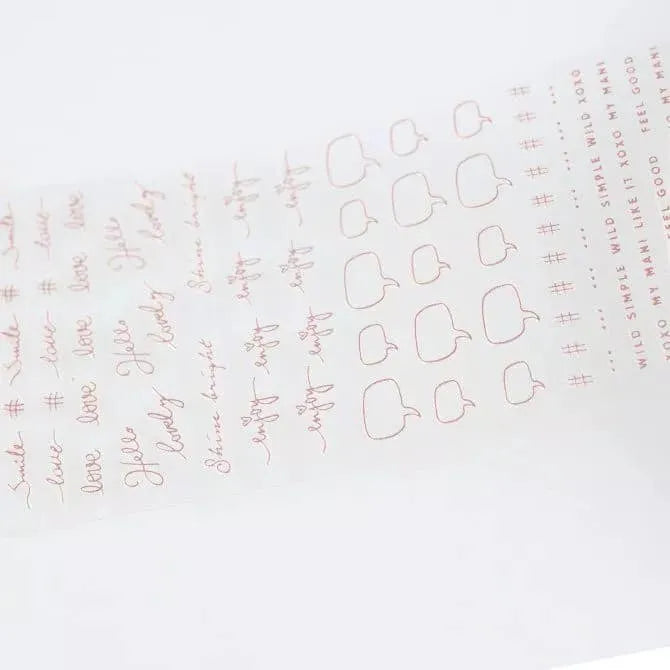 Smile # Smile # Smile
love # love # love
love love love love love
Hello Hello Hello
lovely lovely lovely
Shine bright Shine bright
enjoy enjoy enjoy enjoy
enjoy enjoy enjoy enjoy
# # # # # # # # # # #
... ... ... ... ... ... ...
WILD SIMPLE WILD SIMPLE WILD XOXO
XOXO MY MANI LIKE IT XOXO MY MANI
FEEL GOOD FEEL GOOD
MY MANI